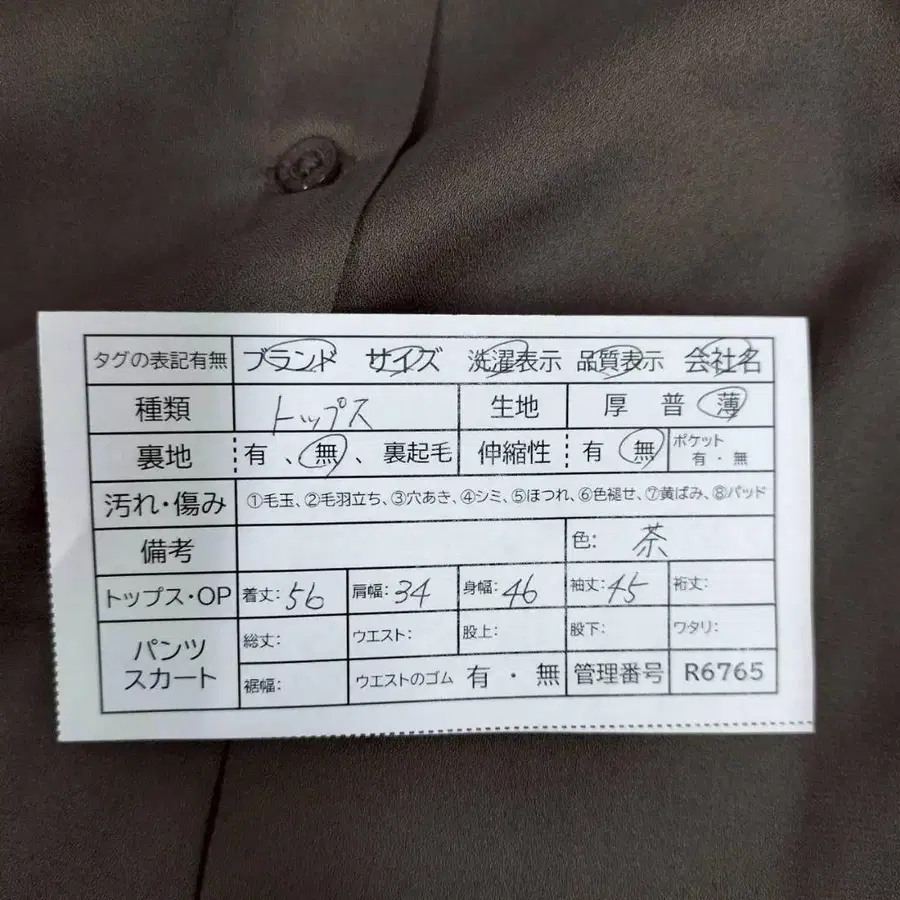 タグの表記有無 ブランド サイズ 洗濯表示 品質表示 会社名
種類 トップス 生地 厚 普 薄
裏地 有 、無 、裏起毛 伸縮性 有 無 ポケット 有・無
汚れ・傷み ①毛玉、②毛羽立ち、③穴あき、④シミ、⑤ほつれ、⑥色褪せ、⑦黄ばみ、⑧パッド
備考 色: 茶
トップス・OP 着丈:56 肩幅:34 身幅:46 袖丈:45 裄丈:
パンツ スカート 総丈: ウエスト: 股上: 股下: ワタリ:
裾幅: ウエストのゴム 有・無 管理番号 R6765